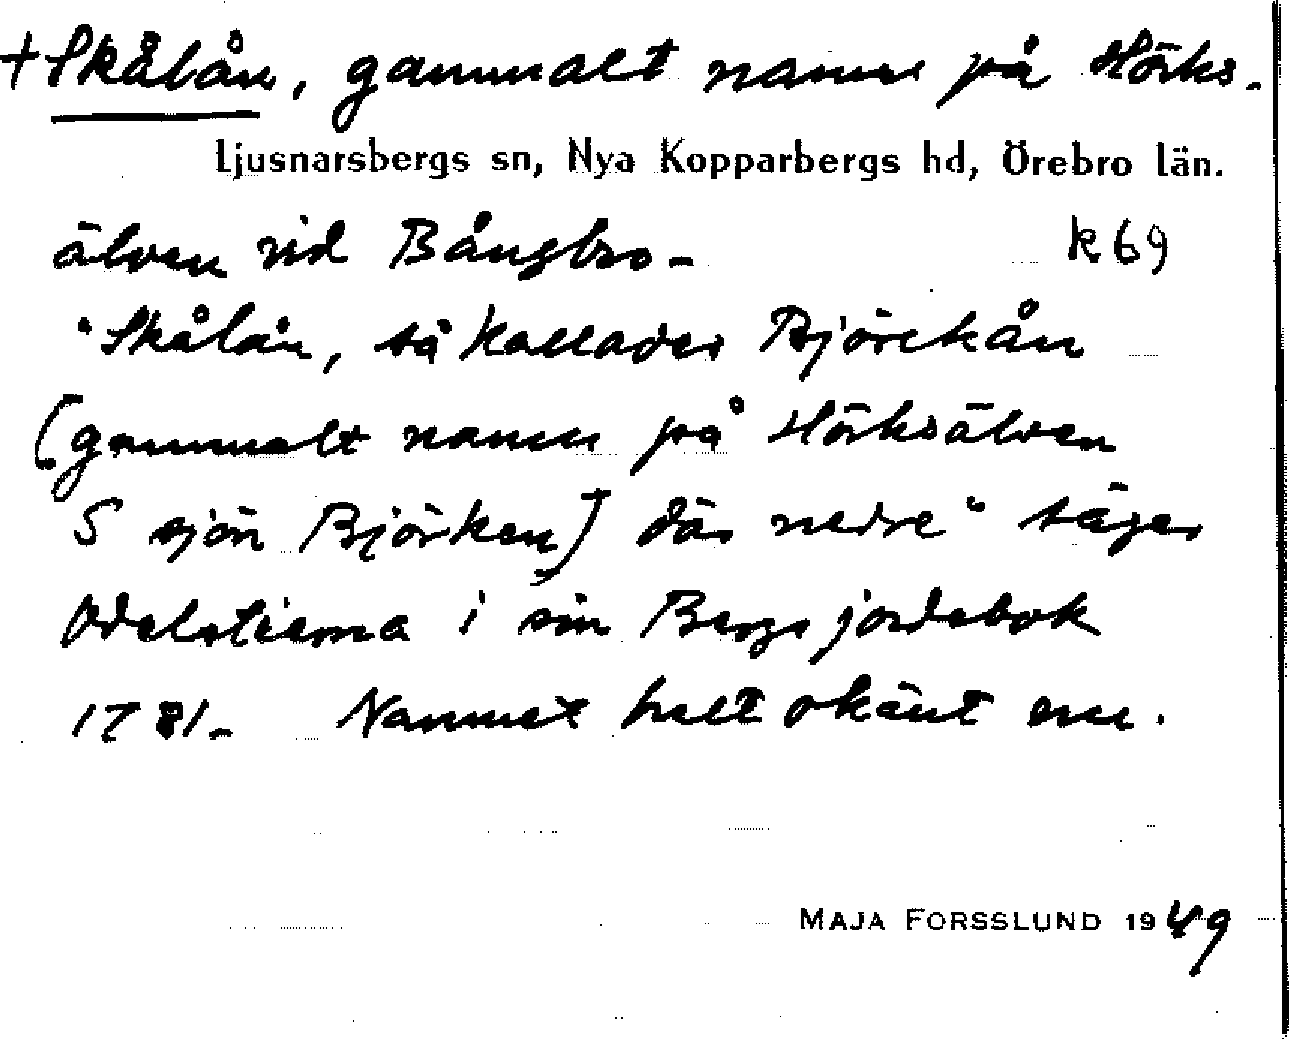 + Skålån, gammalt namn på Hörks-
Ljusnarsbergs sn, Nya Kopparbergs hd, Örebro län.
älven vid Bångbro- k 69
"Skålån, så kallades Björckån
[gammalt namn på Hörksälven
S sjön Björken] där nedre" säger
Odelstierna i sin Bergsjordebok
1781- Namnet helt okänt nu.
MAJA FORSSLUND 1949